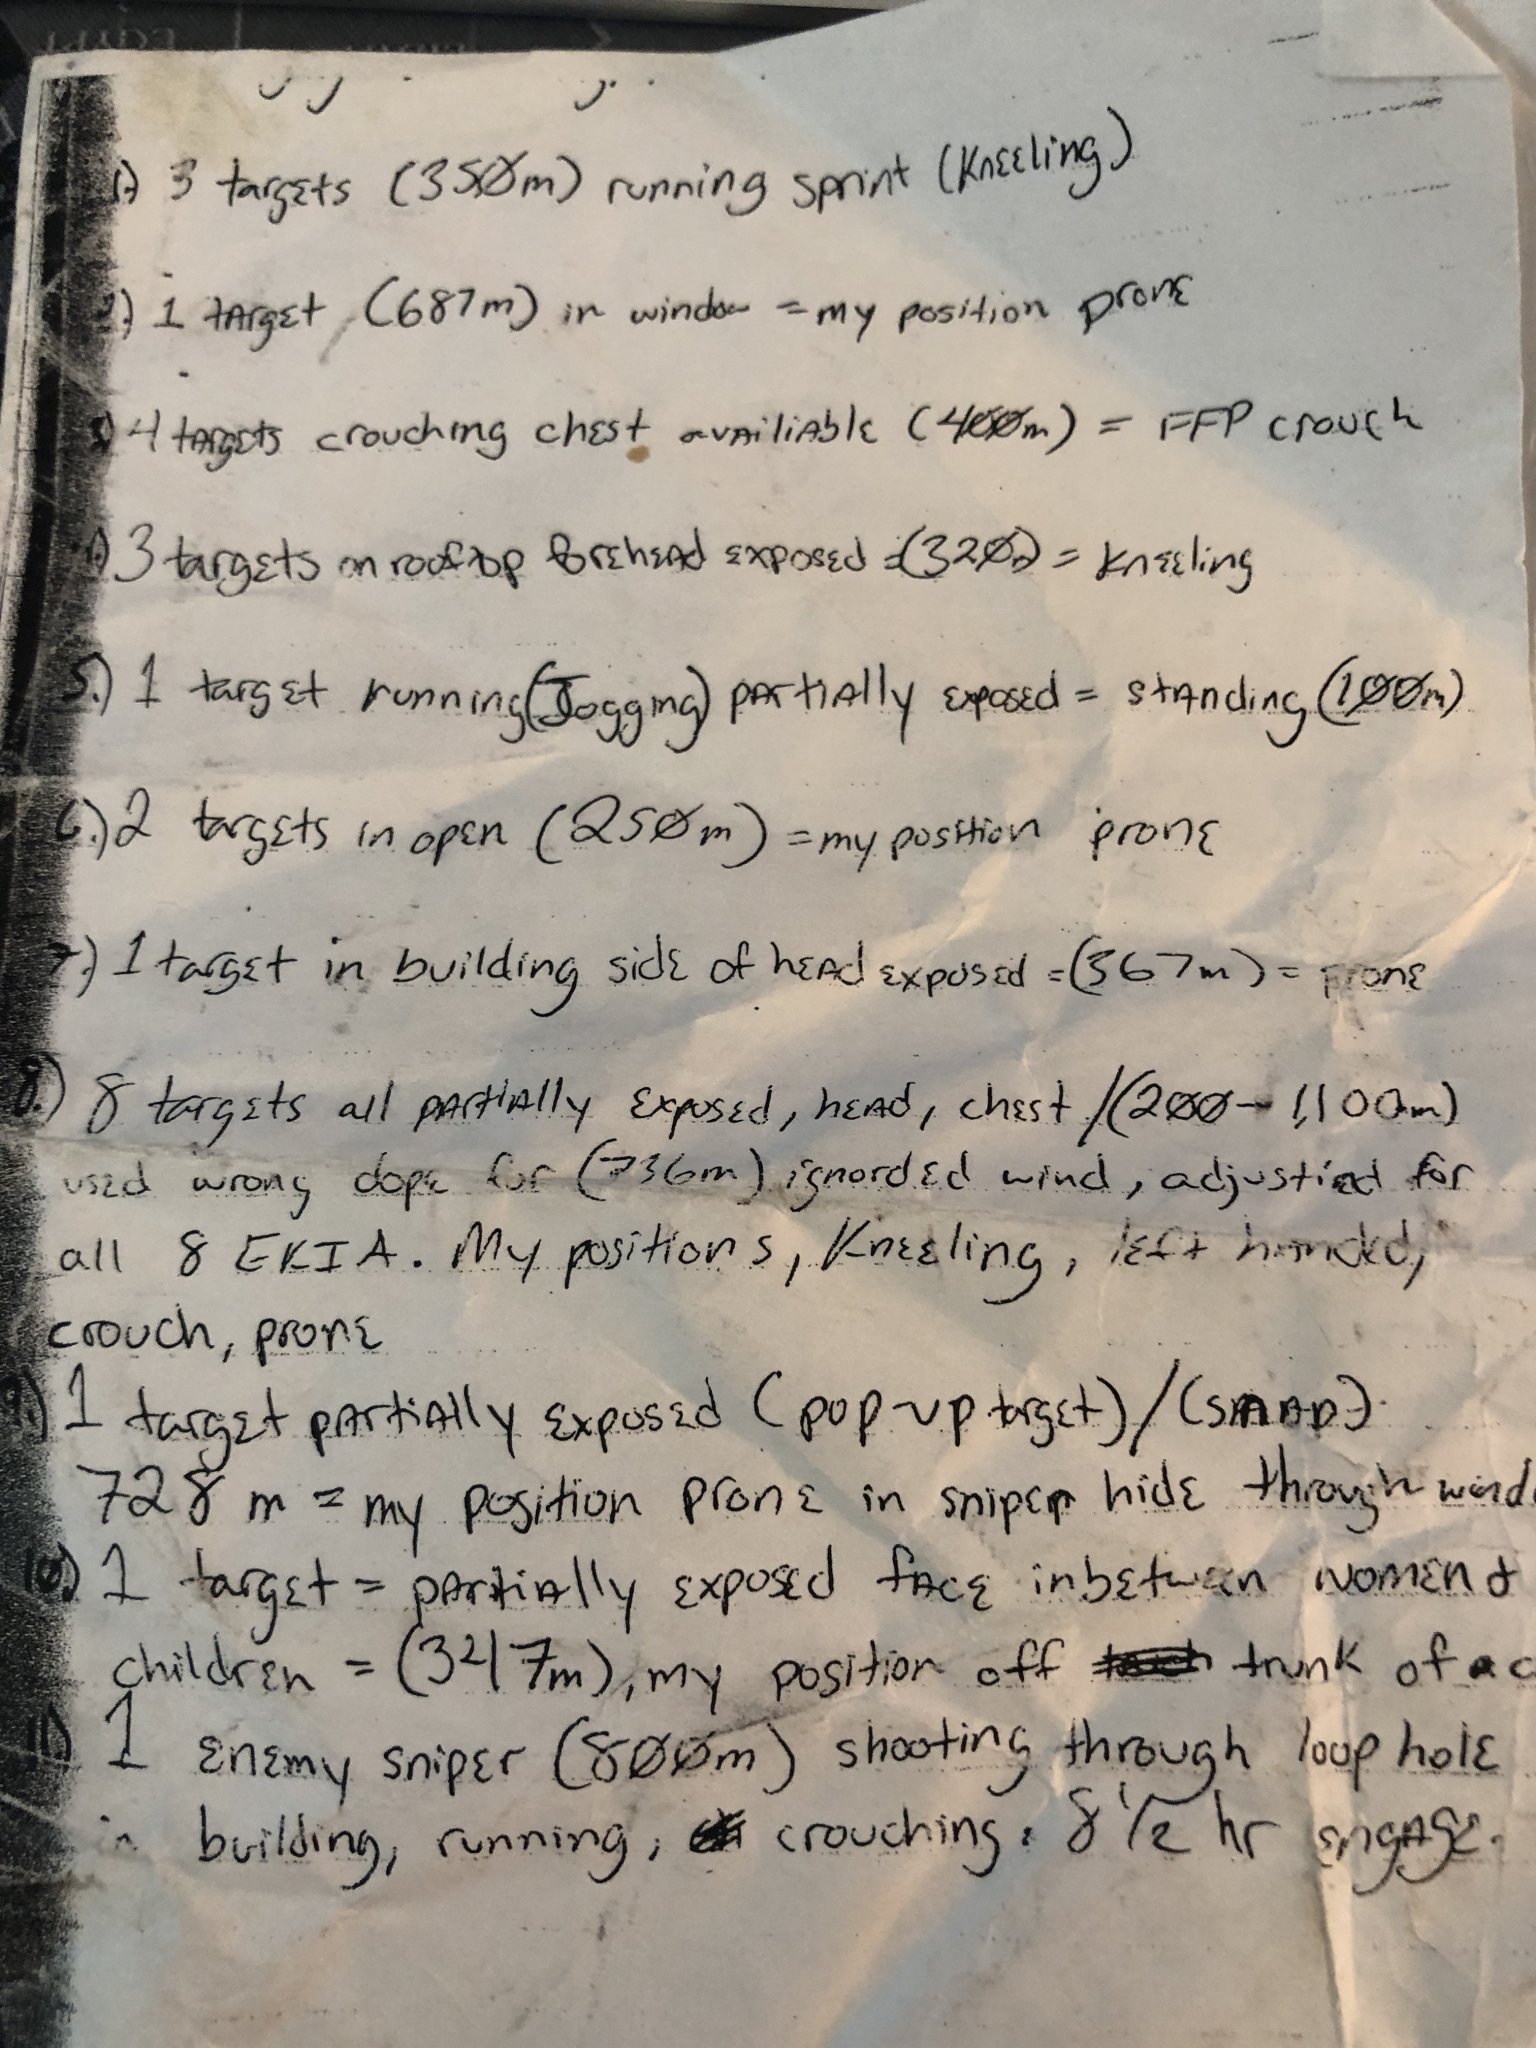 1.) 3 targets (350m) running sprint (Kneeling)
2.) 1 target (687m) in window = my position prone
3.) 4 targets crouching chest availiable (400m) = FFP crouch
4.) 3 targets on rooftop forehead exposed = (320m) = Kneeling
5.) 1 target running (Jogging) partially exposed = standing (100m)
6.) 2 targets in open (250m) = my position prone
7.) 1 target in building side of head exposed = (367m) = prone
8.) 8 targets all partially exposed, head, chest /(200 - 1,100m)
used wrong dope for (736m) ignorded wind, adjustied for
all 8 EKIA. My positions, Kneeling, left handed,
crouch, prone
9.) 1 target partially exposed (pop-up target)/(snap)
728 m = my position prone in sniper hide through
10.) 1 target = partially exposed face inbetween women &
children = (m), my position off trunk of a
11.) 1 enemy sniper (800m) shooting through loop hole
in building, running, crouching. 8 1/2 hr engage.